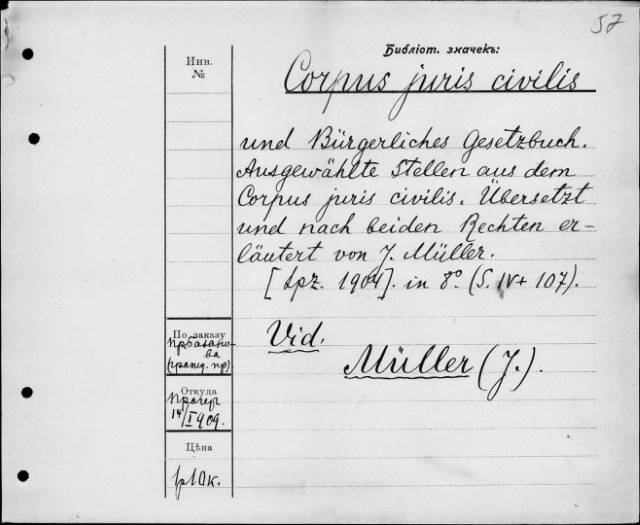 57
Библіот. значекъ:
Инв.
№
Corpus juris civilis
und Bürgerliches Gesetzbuch.
Ausgewählte Stellen aus dem
Corpus juris civilis. Übersetzt
und nach beiden Rechten er-
läutert von J. Müller.
[Lpz. 1904]. in 8° (S. IV + 107).
Vid.
Müller (J.).
По заказу
(гражд. пр)
Откуда
Прагер
14/I 1909.
Цѣна
1р10к.